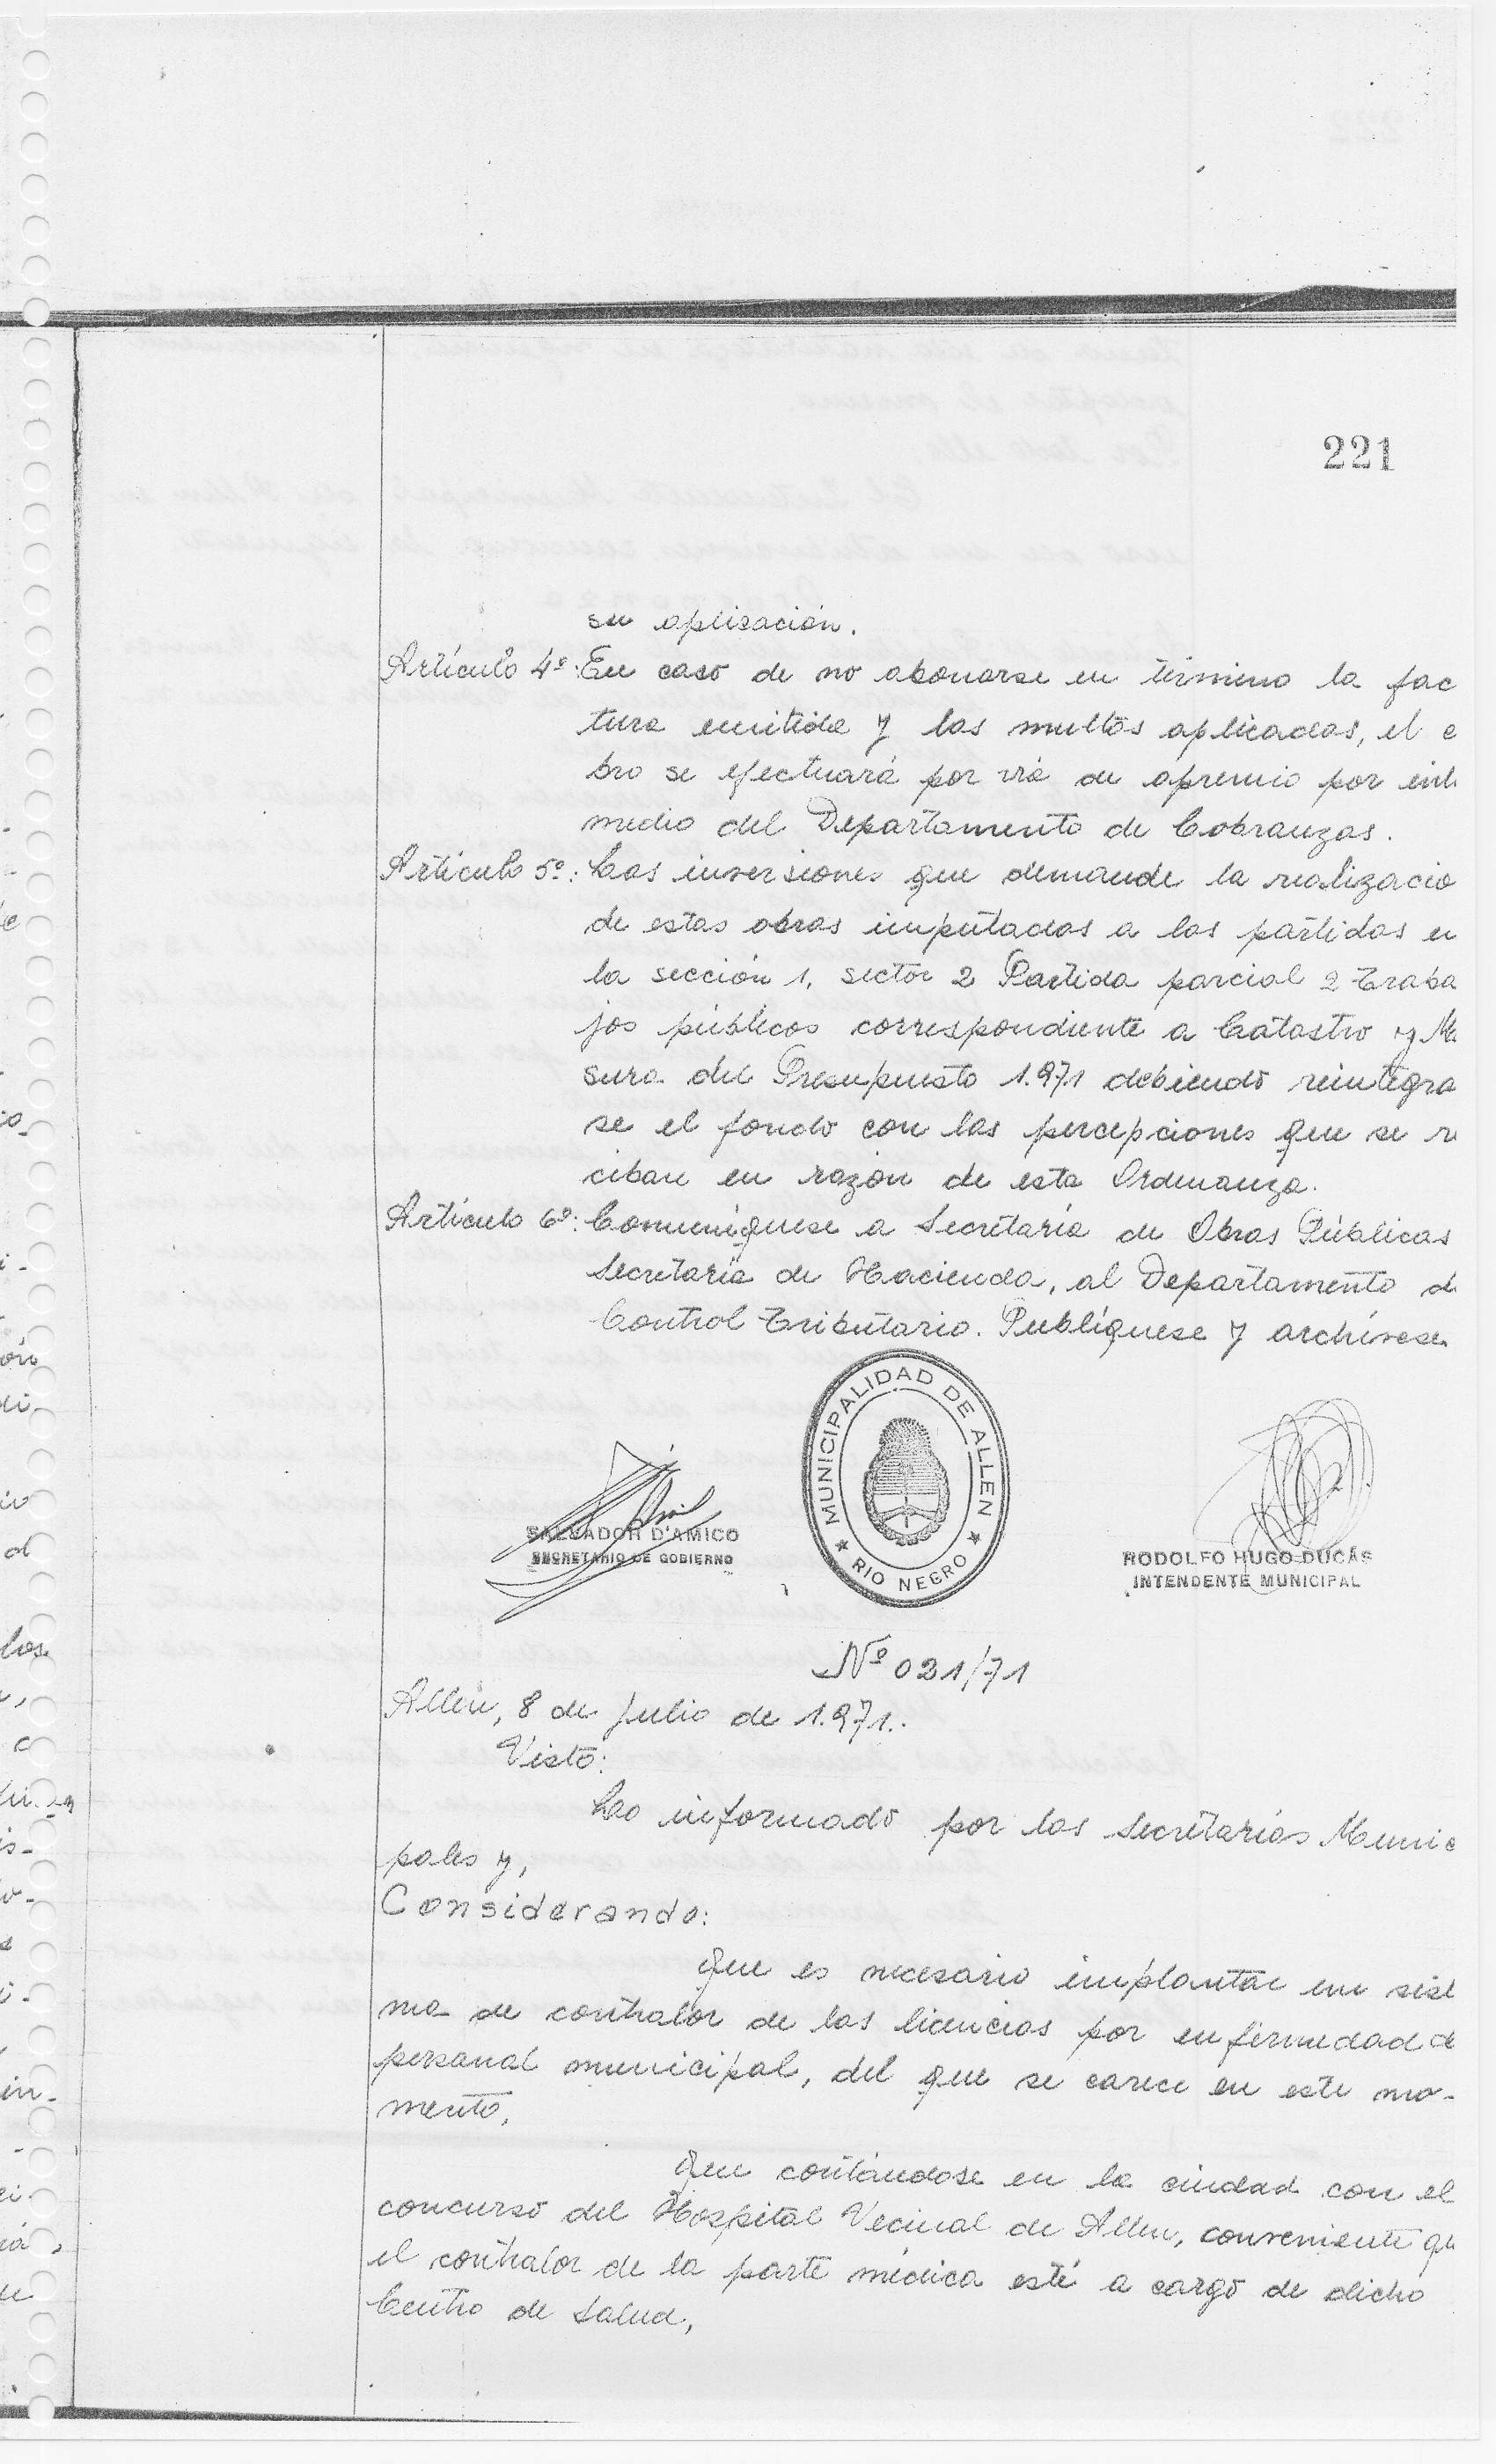 221
su aplicación.
Artículo 4º: En caso de no abonarse en término la fac
tura emitida y las multas aplicadas, el c
bro se efectuará por vía de apremio por int
medio del Departamento de Cobranzas.
Artículo 5º: Las inversiones que demande la realizacio
de estas obras imputadas a las partidas en
la sección 1, sector 2 Partida parcial 2 Traba
jos públicos correspondiente a Catastro y Me
sura del Presupuesto 1.971 debiendo reintegra
se el fondo con las percepciones que se re
ciban en razón de esta Ordenanza.
Artículo 6º: Comuníquese a Secretaría de Obras Públicas
Secretaría de Hacienda, al Departamento d
Control Tributario. Publíquese y archívese.
MUNICIPALIDAD DE ALLEN
RIO NEGRO
SALVADOR D'AMICO
SECRETARIO DE GOBIERNO
RODOLFO HUGO DUCÁS
INTENDENTE MUNICIPAL
Nº 021/71
Allen, 8 de julio de 1.971.-
Visto:
Lo informado por las Secretarías Munic
pales y,
Considerando:
Que es necesario implantar un sist
ma de contralor de las licencias por enfermedad d
personal municipal, del que se carece en este mo-
mento,
Que contándose en la ciudad con el
concurso del Hospital Vecinal de Allen, conveniente qu
el contralor de la parte médica esté a cargo de dicho
Centro de Salud,